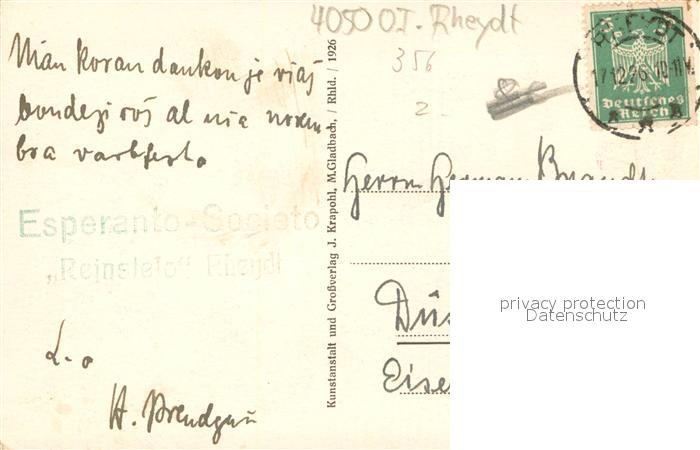 4050 OT. Rheydt
356
2
Nian koran dankon je viaj
bondeziroj al nia novem-
bra varbfesto.
Esperanto-Societo
Rheydt
L. o
H.
Kunstanstalt und Großverlag J. Krapohl, M.Gladbach, / Rhld. / 1926
RHEYDT
17.12.26
Deutsches
Reich
5
Herrn Herman
Düs
Eise
privacy protection
Datenschutz